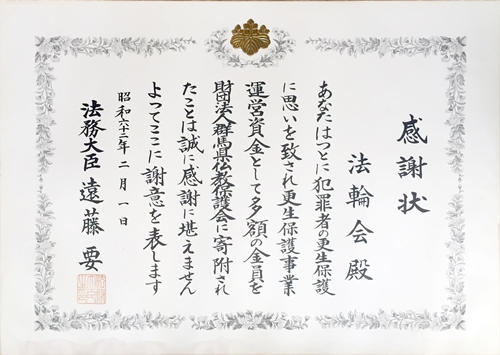 感謝状
法輪会殿
あなたはつとに犯罪者の更生保護
に思いを致され更生保護事業
運営資金として多額の金員を
財団法人群馬県仏教保護会に寄附され
たことは誠に感謝に堪えません
よってここに謝意を表します
昭和六十三年二月一日
法務大臣 遠藤要